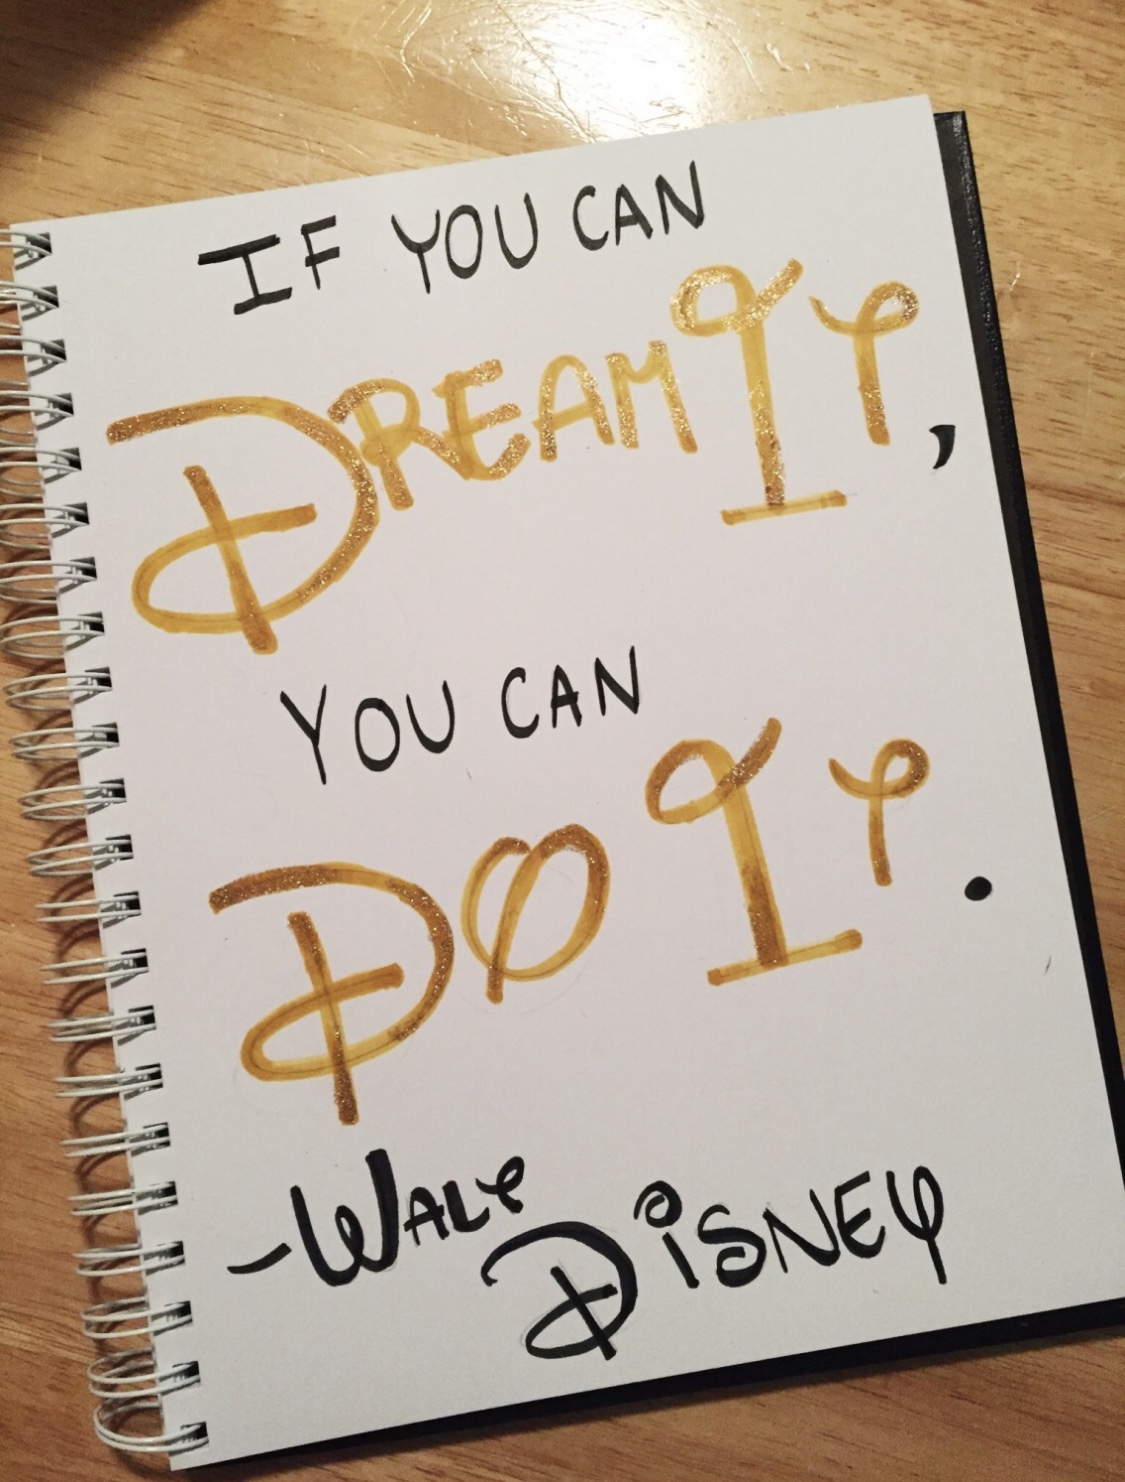 IF YOU CAN
DREAM IT,
YOU CAN
DO IT.
-WALT DISNEY